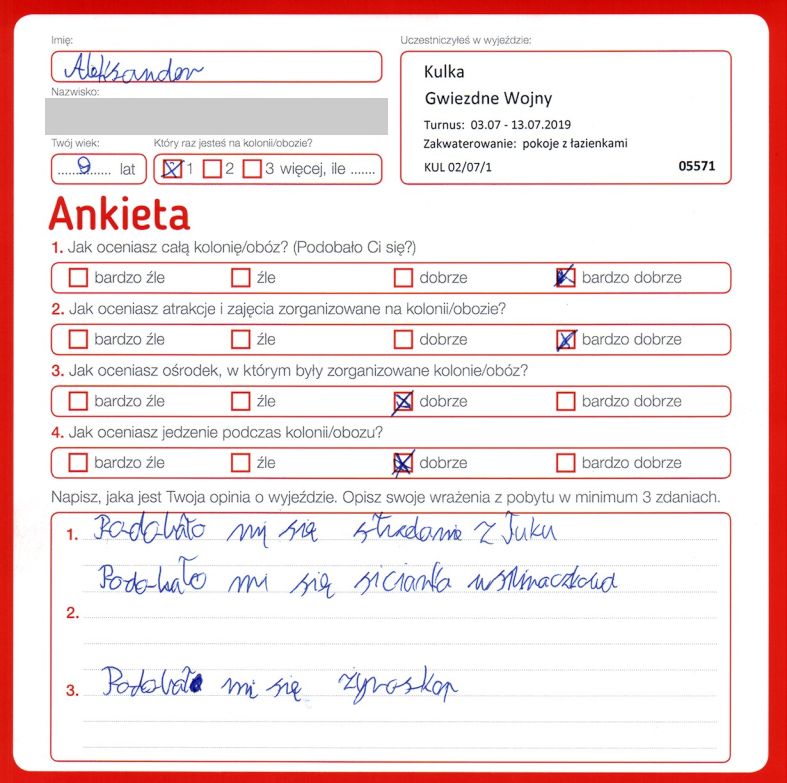 Imię:
Aleksander
Nazwisko:
Twój wiek:
9 lat
Który raz jesteś na kolonii/obozie?
1 2 3 więcej, ile .......
Uczestniczyłeś w wyjeździe:
Kulka
Gwiezdne Wojny
Turnus: 03.07 - 13.07.2019
Zakwaterowanie: pokoje z łazienkami
KUL 02/07/1 05571
Ankieta
1. Jak oceniasz całą kolonię/obóz? (Podobało Ci się?)
bardzo źle źle dobrze bardzo dobrze
2. Jak oceniasz atrakcje i zajęcia zorganizowane na kolonii/obozie?
bardzo źle źle dobrze bardzo dobrze
3. Jak oceniasz ośrodek, w którym były zorganizowane kolonie/obóz?
bardzo źle źle dobrze bardzo dobrze
4. Jak oceniasz jedzenie podczas kolonii/obozu?
bardzo źle źle dobrze bardzo dobrze
Napisz, jaka jest Twoja opinia o wyjeździe. Opisz swoje wrażenia z pobytu w minimum 3 zdaniach.
1. Podobało mi się stzelanie z łuku
Podobało mi się sicianka
2.
3. Podobało mi się żyroskop